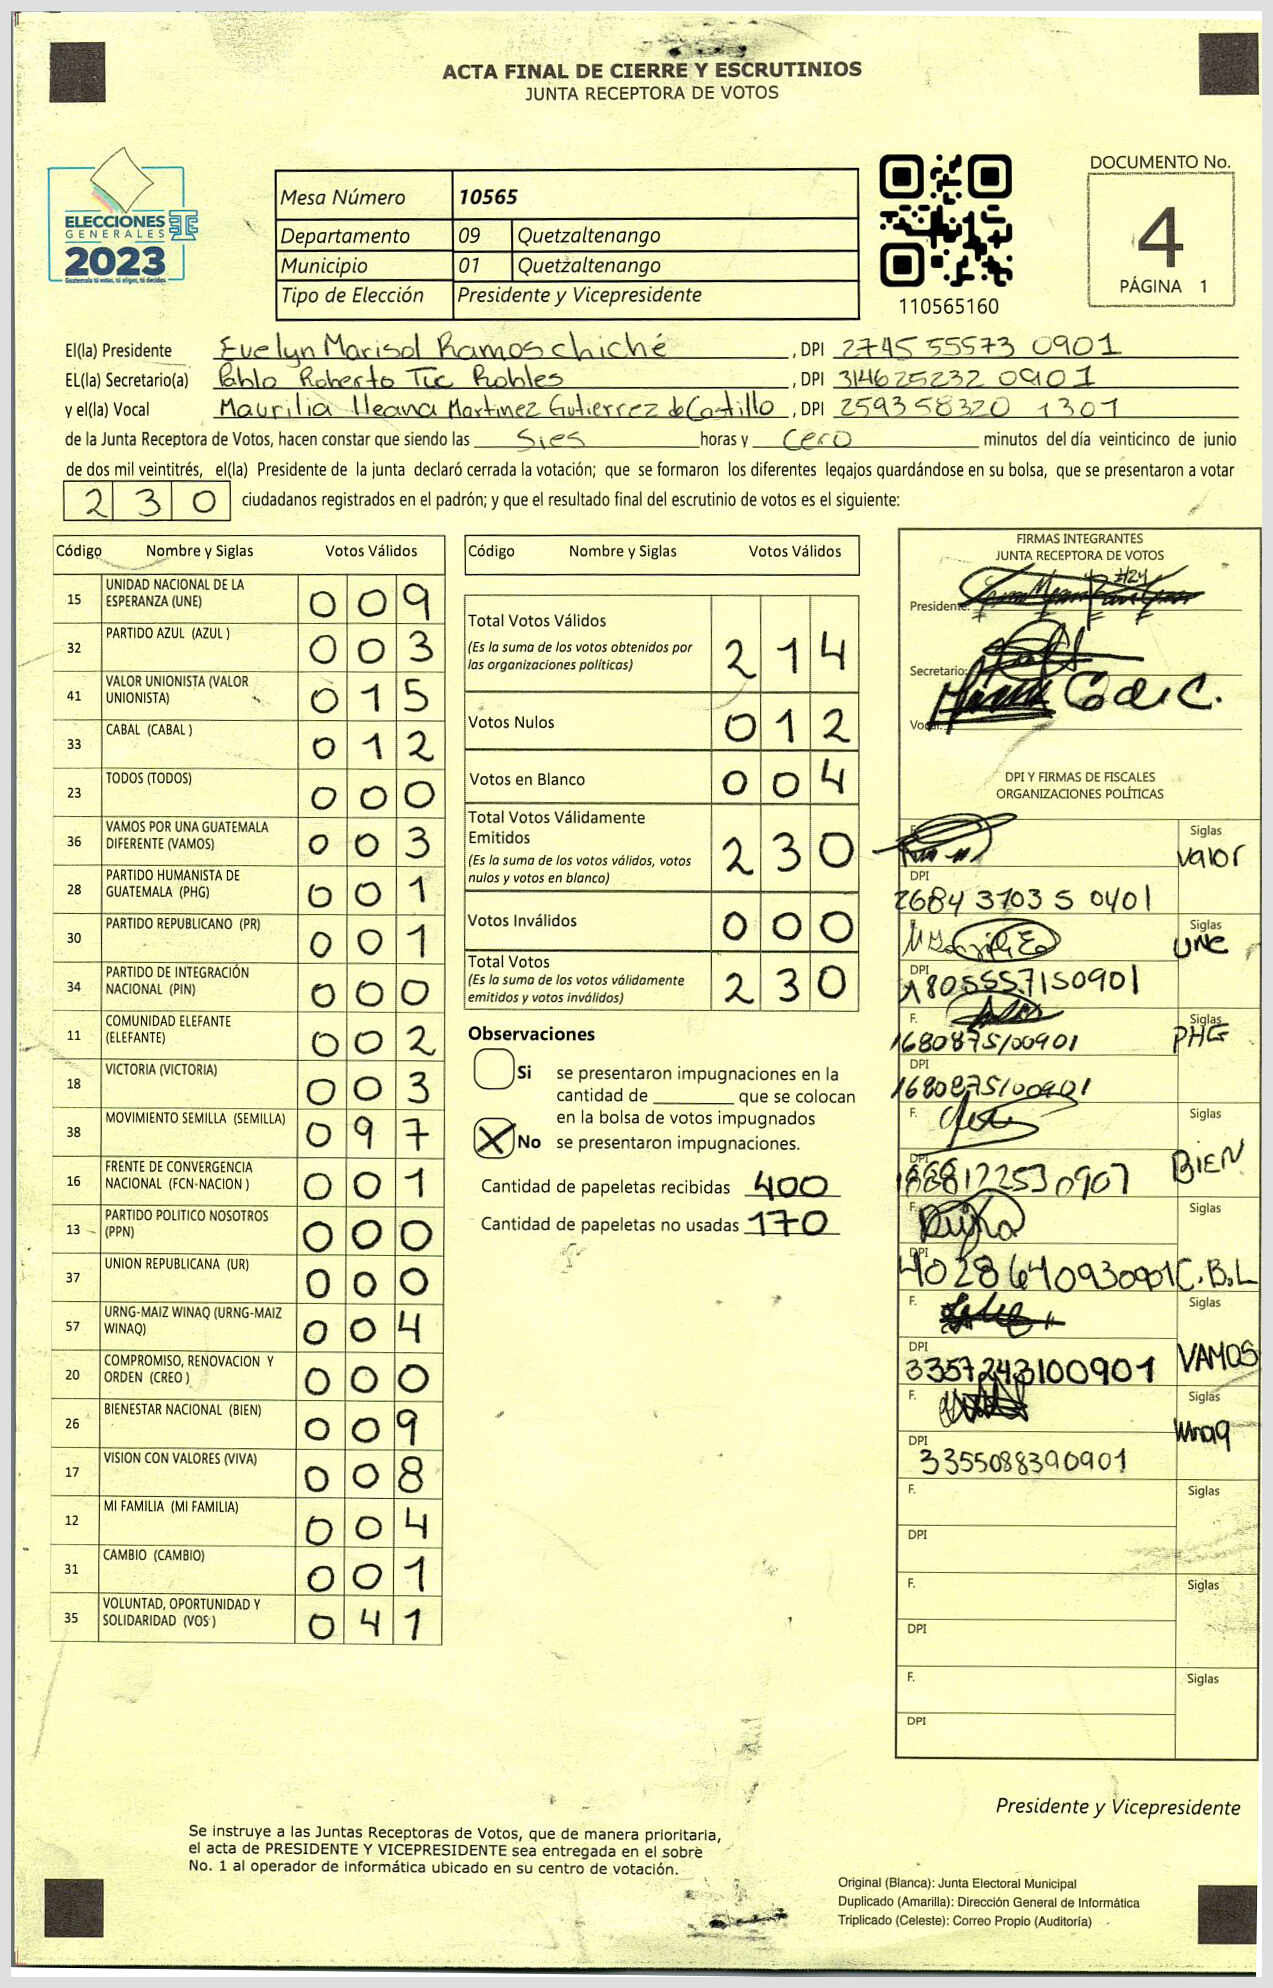 ACTA FINAL DE CIERRE Y ESCRUTINIOS
JUNTA RECEPTORA DE VOTOS
ELECCIONES
GENERALES
2023
Guatemala tú votas, tú eliges, tú decides
Mesa Número 10565
Departamento 09 Quetzaltenango
Municipio 01 Quetzaltenango
Tipo de Elección Presidente y Vicepresidente
110565160
DOCUMENTO No.
4
PÁGINA 1
El(la) Presidente Evelyn Marisol Ramos chiché , DPI 2745 55573 0901
EL(la) Secretario(a) Pablo Roberto Tuc Robles , DPI 314625232 0901
y el(la) Vocal Maurilia Ileana Martinez Gutierrez de Castillo , DPI 259358320 1301
de la Junta Receptora de Votos, hacen constar que siendo las Sies horas y cero minutos del día veinticinco de junio
de dos mil veintitrés, el(la) Presidente de la junta declaró cerrada la votación; que se formaron los diferentes legajos guardándose en su bolsa, que se presentaron a votar
230 ciudadanos registrados en el padrón; y que el resultado final del escrutinio de votos es el siguiente:
Código Nombre y Siglas Votos Válidos
15 UNIDAD NACIONAL DE LA ESPERANZA (UNE) 009
32 PARTIDO AZUL (AZUL ) 003
41 VALOR UNIONISTA (VALOR UNIONISTA) 015
33 CABAL (CABAL ) 012
23 TODOS (TODOS) 000
36 VAMOS POR UNA GUATEMALA DIFERENTE (VAMOS) 003
28 PARTIDO HUMANISTA DE GUATEMALA (PHG) 001
30 PARTIDO REPUBLICANO (PR) 001
34 PARTIDO DE INTEGRACIÓN NACIONAL (PIN) 000
11 COMUNIDAD ELEFANTE (ELEFANTE) 002
18 VICTORIA (VICTORIA) 003
38 MOVIMIENTO SEMILLA (SEMILLA) 097
16 FRENTE DE CONVERGENCIA NACIONAL (FCN-NACION ) 001
13 PARTIDO POLITICO NOSOTROS (PPN) 000
37 UNION REPUBLICANA (UR) 000
57 URNG-MAIZ WINAQ (URNG-MAIZ WINAQ) 004
20 COMPROMISO, RENOVACION Y ORDEN (CREO ) 000
26 BIENESTAR NACIONAL (BIEN) 009
17 VISION CON VALORES (VIVA) 008
12 MI FAMILIA (MI FAMILIA) 004
31 CAMBIO (CAMBIO) 001
35 VOLUNTAD, OPORTUNIDAD Y SOLIDARIDAD (VOS ) 041
Código Nombre y Siglas Votos Válidos
Total Votos Válidos 214
(Es la suma de los votos obtenidos por
las organizaciones políticas)
Votos Nulos 012
Votos en Blanco 004
Total Votos Válidamente
Emitidos 230
(Es la suma de los votos válidos, votos
nulos y votos en blanco)
Votos Inválidos 000
Total Votos 230
(Es la suma de los votos válidamente
emitidos y votos inválidos)
Observaciones
Si se presentaron impugnaciones en la
cantidad de ________ que se colocan
en la bolsa de votos impugnados
X No se presentaron impugnaciones.
Cantidad de papeletas recibidas 400
Cantidad de papeletas no usadas 170
FIRMAS INTEGRANTES
JUNTA RECEPTORA DE VOTOS
Presidente:
Secretario:
Vocal:
DPI Y FIRMAS DE FISCALES
ORGANIZACIONES POLÍTICAS
F. Siglas valor
DPI 26843703 5 0401
Siglas UNE
DPI 1805557150901
F. 1680875100901 Siglas PHG
DPI 1680875100901
F. Siglas BIEN
DPI
F. Siglas C.B.L
DPI 4028640930901
F. Siglas VAMOS
DPI 3357243100901
F. Siglas
DPI 3355088390901
F. Siglas
DPI
F. Siglas
DPI
F. Siglas
DPI
Presidente y Vicepresidente
Se instruye a las Juntas Receptoras de Votos, que de manera prioritaria,
el acta de PRESIDENTE Y VICEPRESIDENTE sea entregada en el sobre
No. 1 al operador de informática ubicado en su centro de votación.
Original (Blanca): Junta Electoral Municipal
Duplicado (Amarilla): Dirección General de Informática
Triplicado (Celeste): Correo Propio (Auditoría)